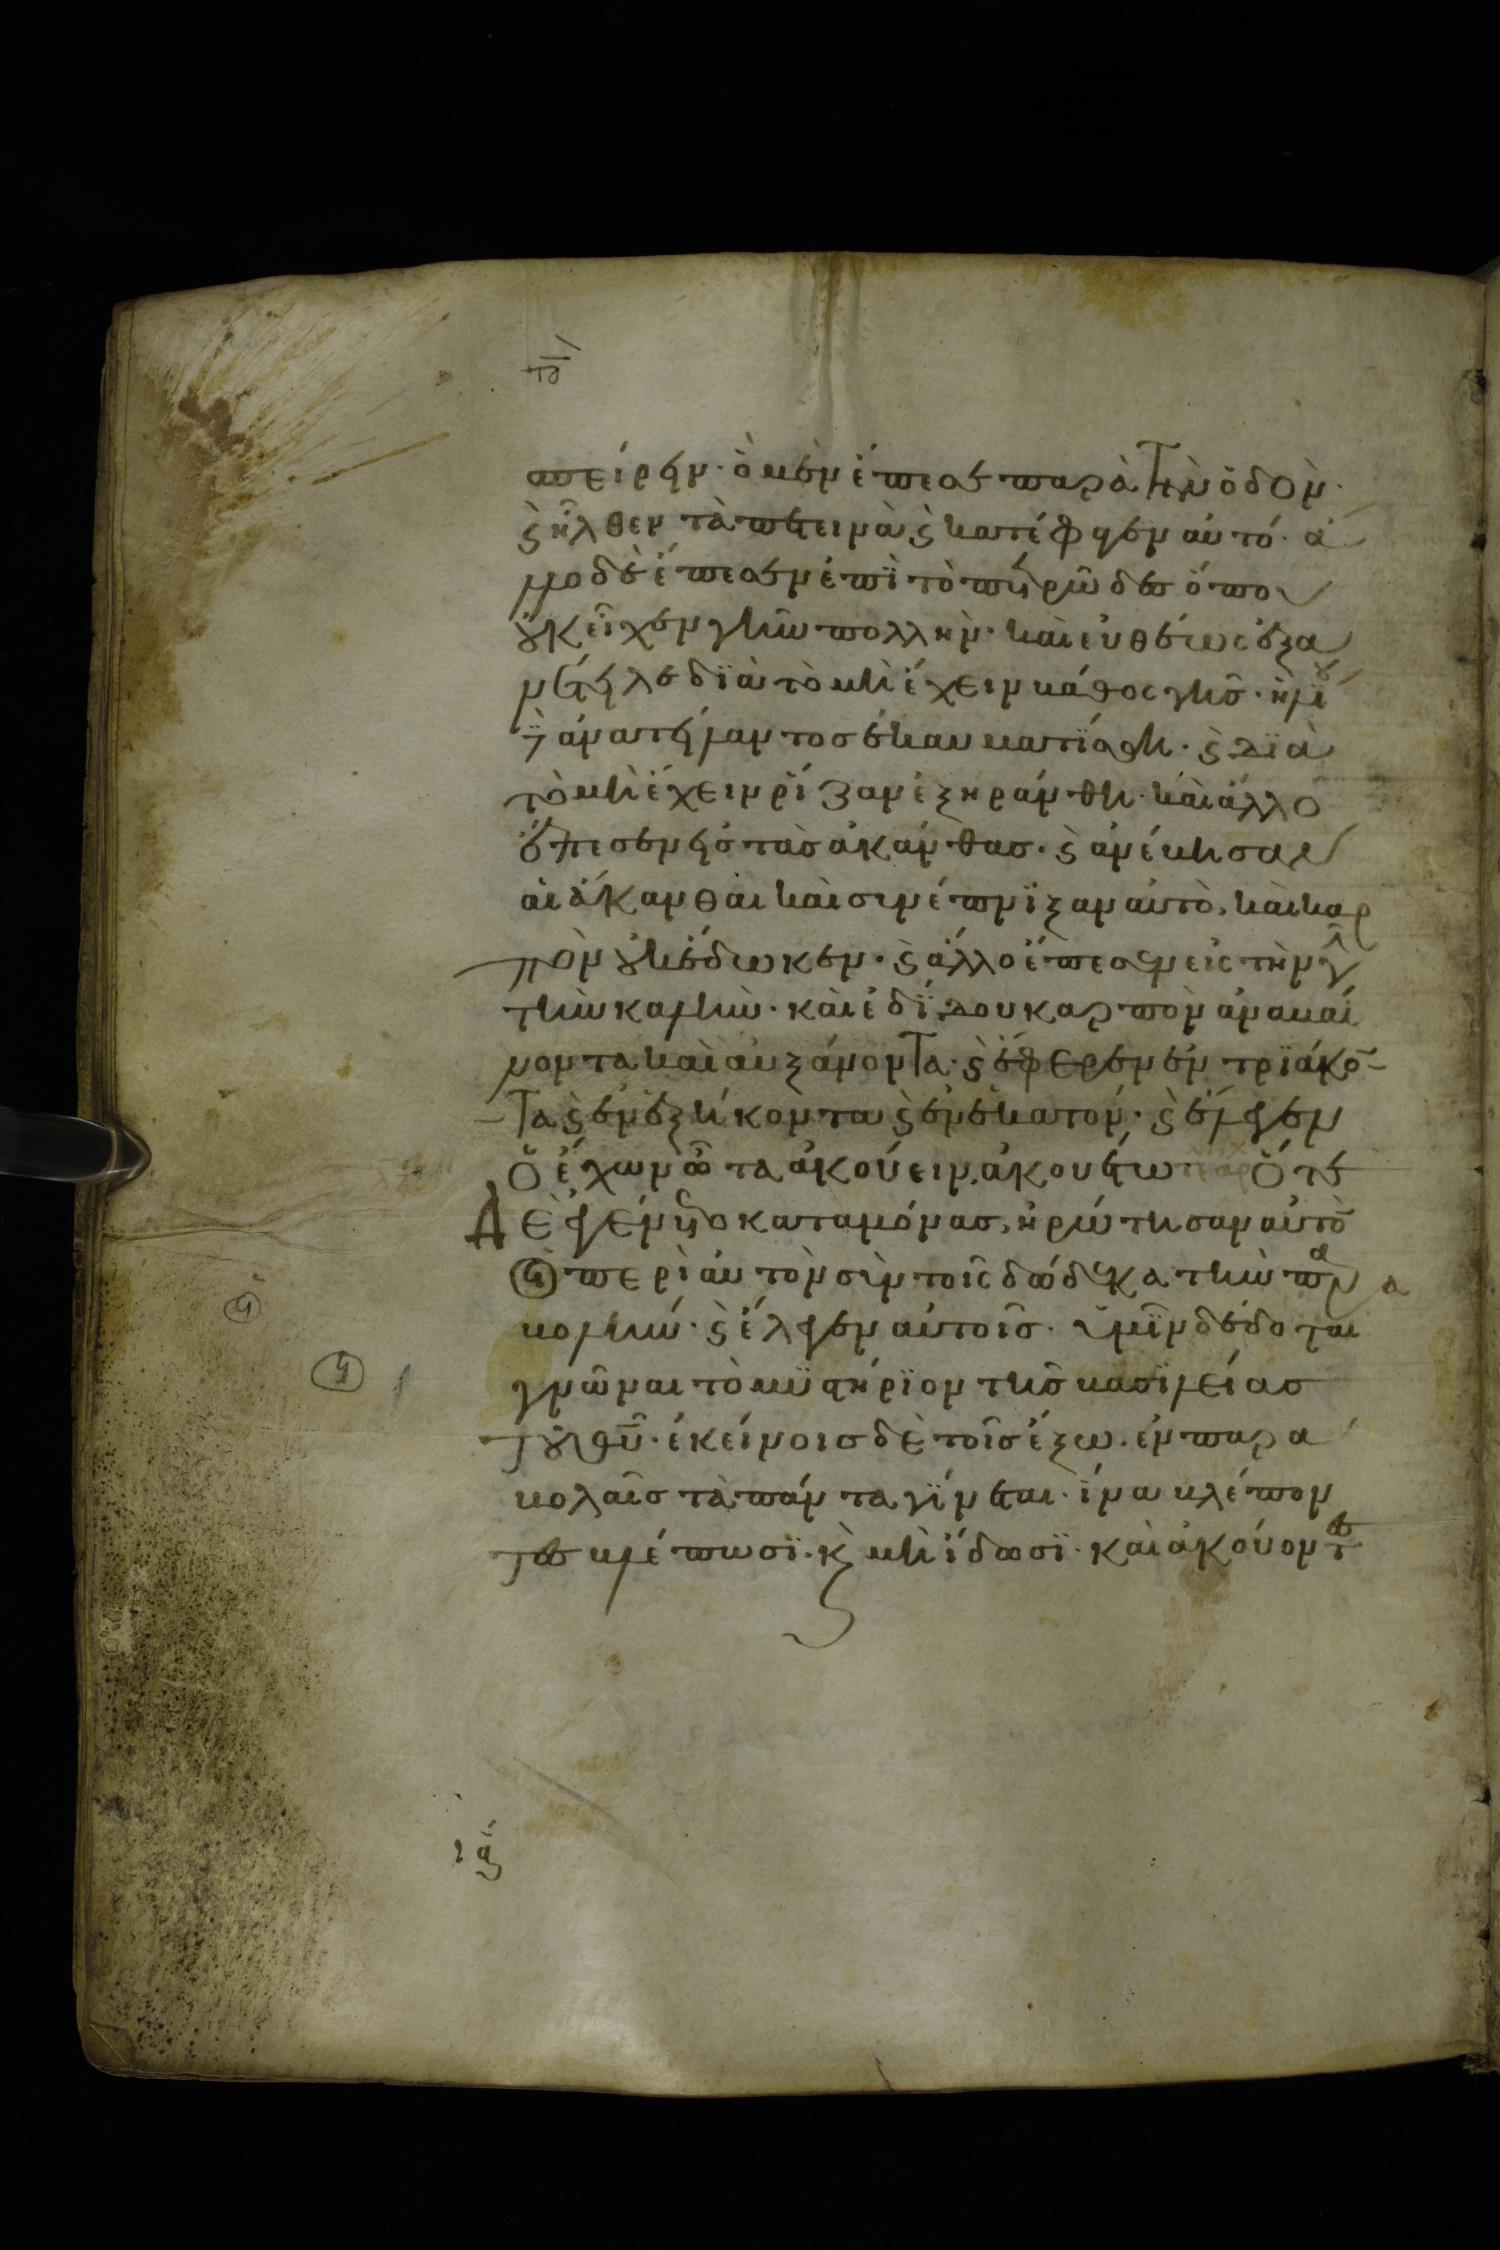 σπείρειν· ὁ μὲν ἔπεσε παρὰ τὴν ὁδὸν·
ϗ ἦλθεν τὰ πετεινὰ ϗ κατέφαγεν αὐτό· ἄλ
λο δὲ ἔπεσεν ἐπὶ τὸ πετρῶδες ὅπου
οὐκ εἶχεν γὴν πολλὴν· καὶ εὐθέως ἐξα
νέτειλε διὰ τὸ μὴ ἔχειν βάθος γῆς· ἡλίου
δὲ ἀνατείλαντος ἐκαυματίσθη· ϗ διὰ
τὸ μὴ ἔχειν ῥίζαν ἐξηράνθη· καὶ ἄλλο
ἔπεσεν εἰς τὰς ἀκάνθας· ϗ ἀνέβησαν
αἱ ἄκανθαι καὶ συνέπνιξαν αὐτὸ, καὶ καρ
πὸν οὐκ ἔδωκεν· ϗ ἄλλο ἔπεσεν εἰς τὴν γῆν
τὴν καλὴν· καὶ ἐδίδου καρπὸν ἀναβαί
νοντα καὶ αὐξάνοντα· ϗ ἔφερεν ἐν τριάκο̄
τα ϗ ἐν ἑξήκοντα ϗ ἐν ἑκατόν· ϗ ἔλεγεν
Ὁ ἔχων ὦτα ἀκούειν, ἀκουέτω Ὅτε
Δὲ ἐγένετο καταμόνας, ἠρώτησαν αὐτὸ̄
οἱ περὶ αὐτὸν σὺν τοῖς δώδεκα τὴν παρα
βολήν· ϗ ἔλεγεν αὐτοῖς· ὑμῖν δέδοται
γνῶναι τὸ μυστήριον τῆς βασιλείας
τοῦ θῡ· ἐκείνοις δὲ τοῖς ἔξω· ἐν παρα
βολαῖς τὰ πάντα γίνεται· ἵνα βλέπον
τες βλέπωσι· ϗ μὴ ἴδωσι· καὶ ἀκούοντες